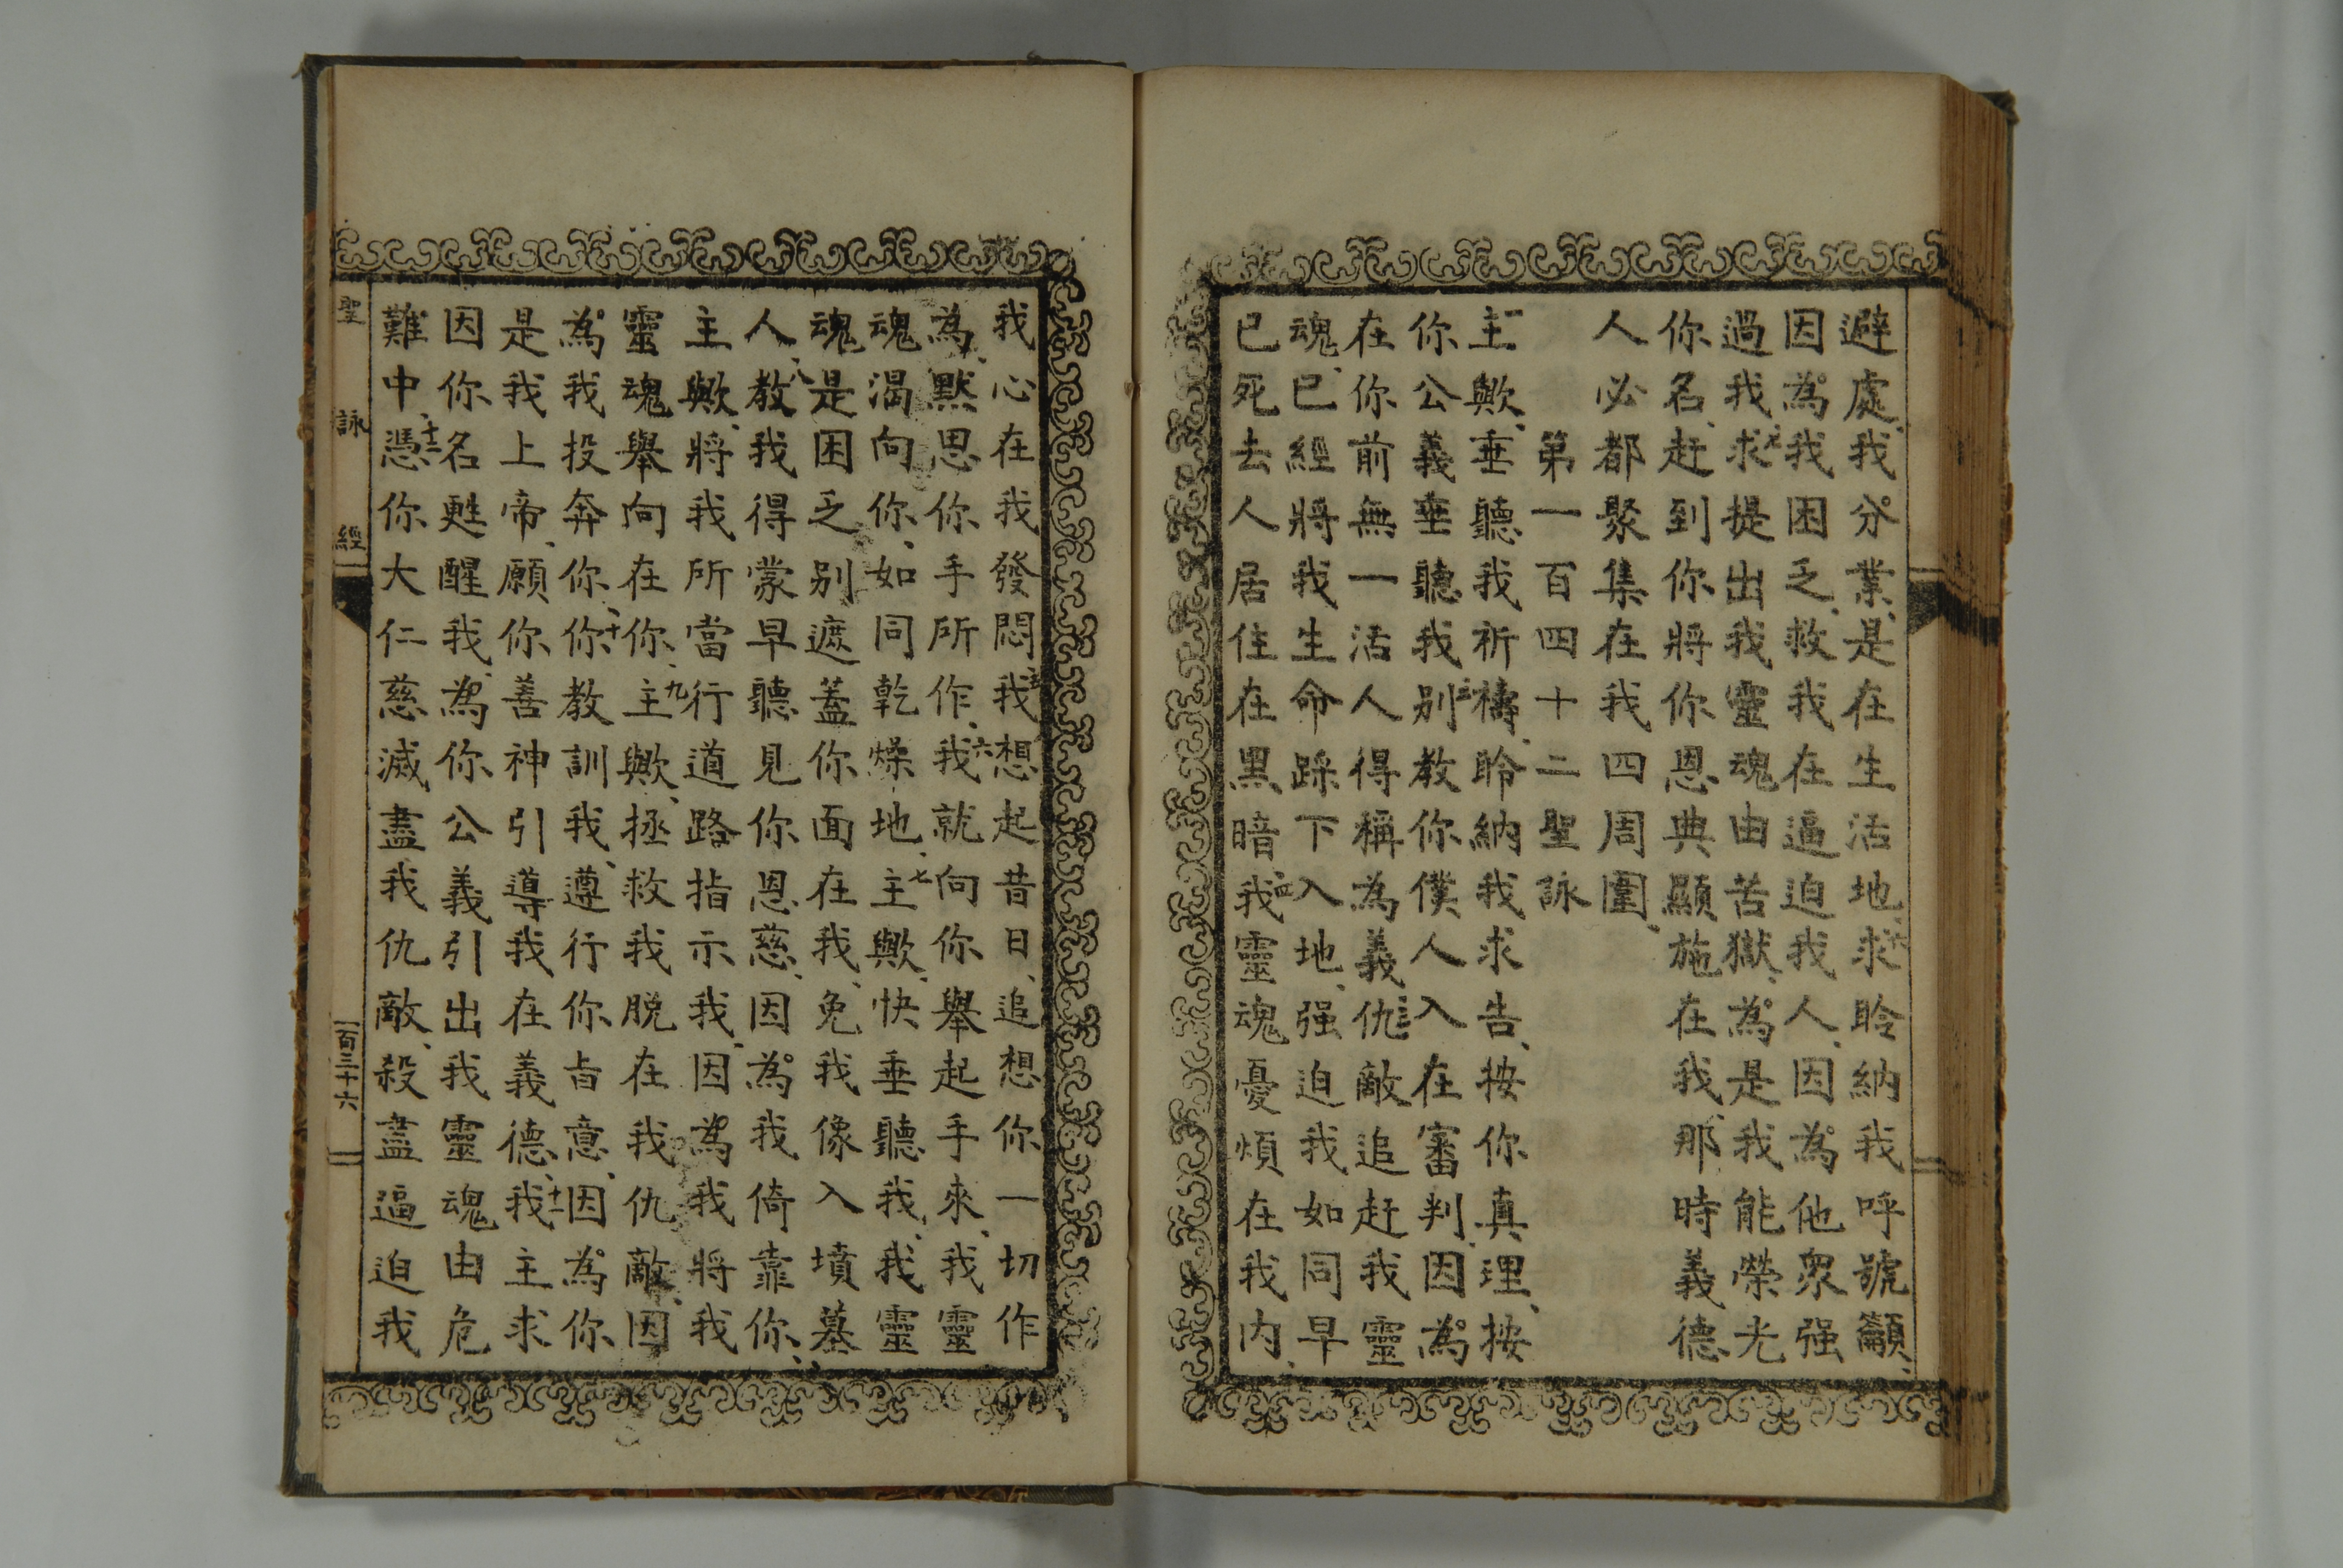 避處、我分業、是在生活地、六求聆納我呼號籲、
因為我困乏、救我在逼迫我人、因為他衆强
過我、七求提出我靈魂由苦獄、為是我能榮光
你名、赶到你將你恩典顯施在我、那時義德
人必都聚集在我四周圍、
第一百四十二聖詠
一主歟、垂聽我祈禱、聆納我求告、按你真理、按
你公義垂聽我、二別教你僕人入在審判、因為
在你前無一活人得稱為義、三仇敵追赶我靈
魂、已經將我生命踩下入地、强迫我如同早
已死去人居住在黑暗、四我靈魂憂煩在我內、
我心在我發悶、五我想起昔日、追想你一切作
為、默思你手所作、六我就向你舉起手來、我靈
魂渴向你、如同乾燥地、七主歟、快垂聽我、我靈
魂是困乏、別遮蓋你面在我、免我像入墳墓
人、八教我得蒙早聽見你恩慈、因為我倚靠你、
主歟、將我所當行道路指示我、因為我將我
靈魂舉向在你、九主歟、拯救我脱在我仇敵、因
為我投奔你、十你教訓我、遵行你旨意、因為你
是我上帝、願你善神引導我在義德、十一我主求
因你名甦醒我、為你公義引出我靈魂由危
難中、十二憑你大仁慈滅盡我仇敵、殺盡逼迫我
聖詠經
一百三十六